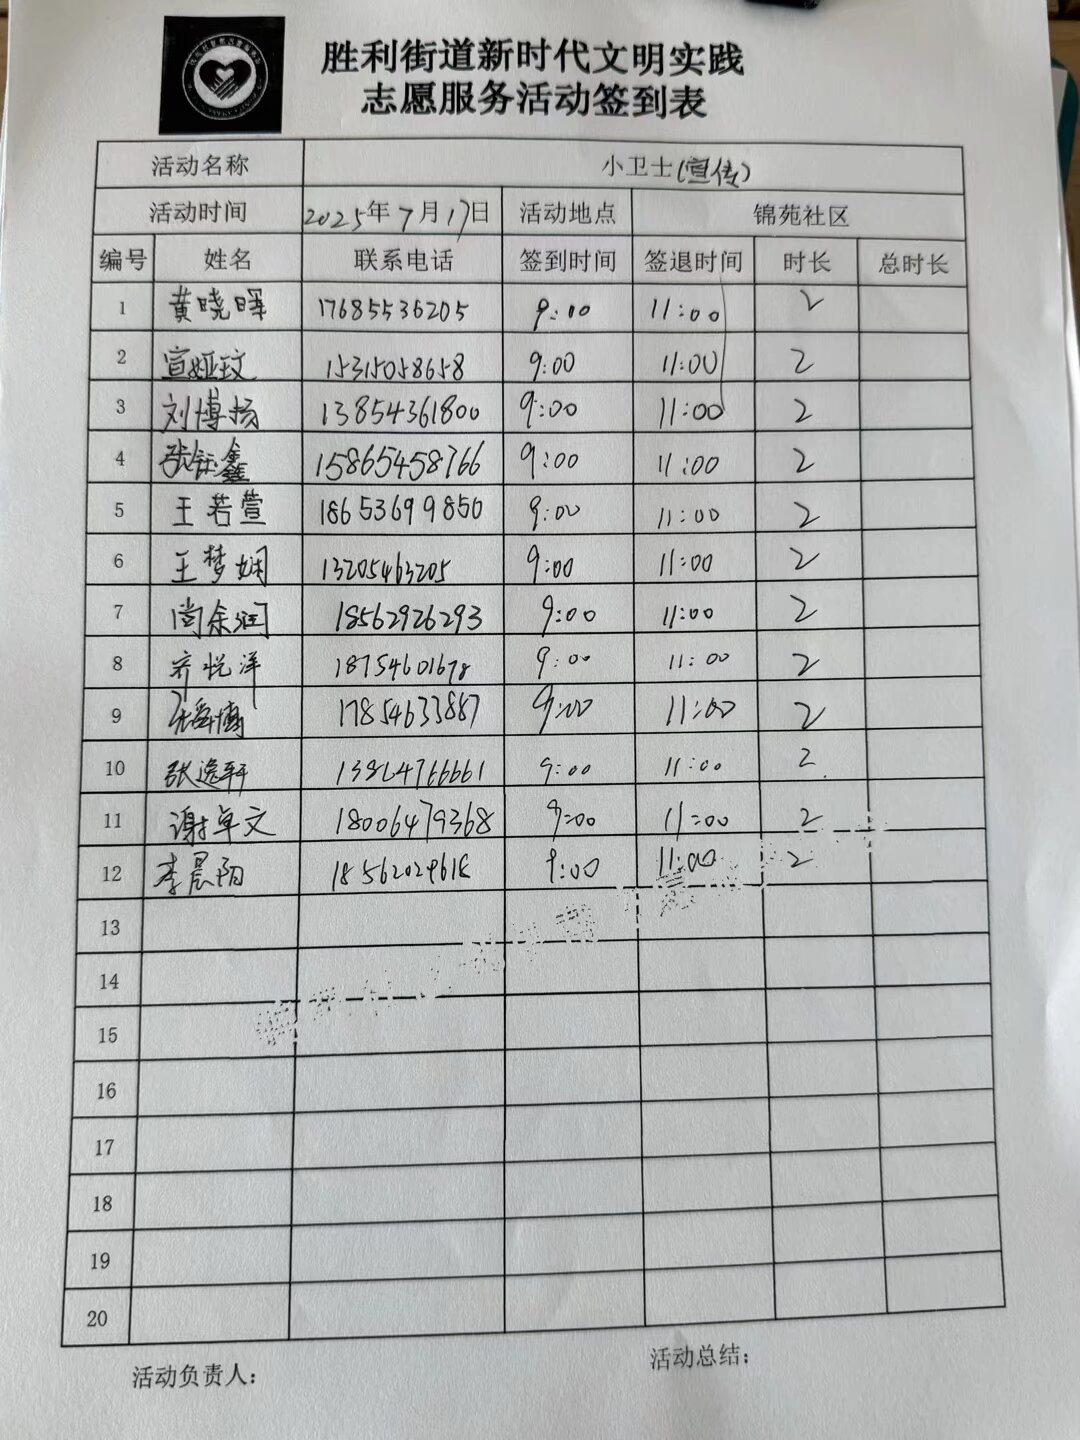 胜利街道新时代文明实践
志愿服务活动签到表
活动名称 小卫士(宣传)
活动时间 2025年7月17日 活动地点 锦苑社区
编号 姓名 联系电话 签到时间 签退时间 时长 总时长
1 黄晓晖 17685536205 9:00 11:00 2
2 宣娅玟 15315058658 9:00 11:00 2
3 刘博扬 13854361800 9:00 11:00 2
4 张钰鑫 15865458766 9:00 11:00 2
5 王若萱 18653699850 9:00 11:00 2
6 王梦娴 13205463205 9:00 11:00 2
7 尚余润 18562926293 9:00 11:00 2
8 齐悦洋 18754601678 9:00 11:00 2
9 张舜博 17854633887 9:00 11:00 2
10 张逸轩 13864766661 9:00 11:00 2
11 谢卓文 18006479368 9:00 11:00 2
12 李晨阳 18562029618 9:00 11:00 2
13
14
15
16
17
18
19
20
活动负责人: 活动总结: